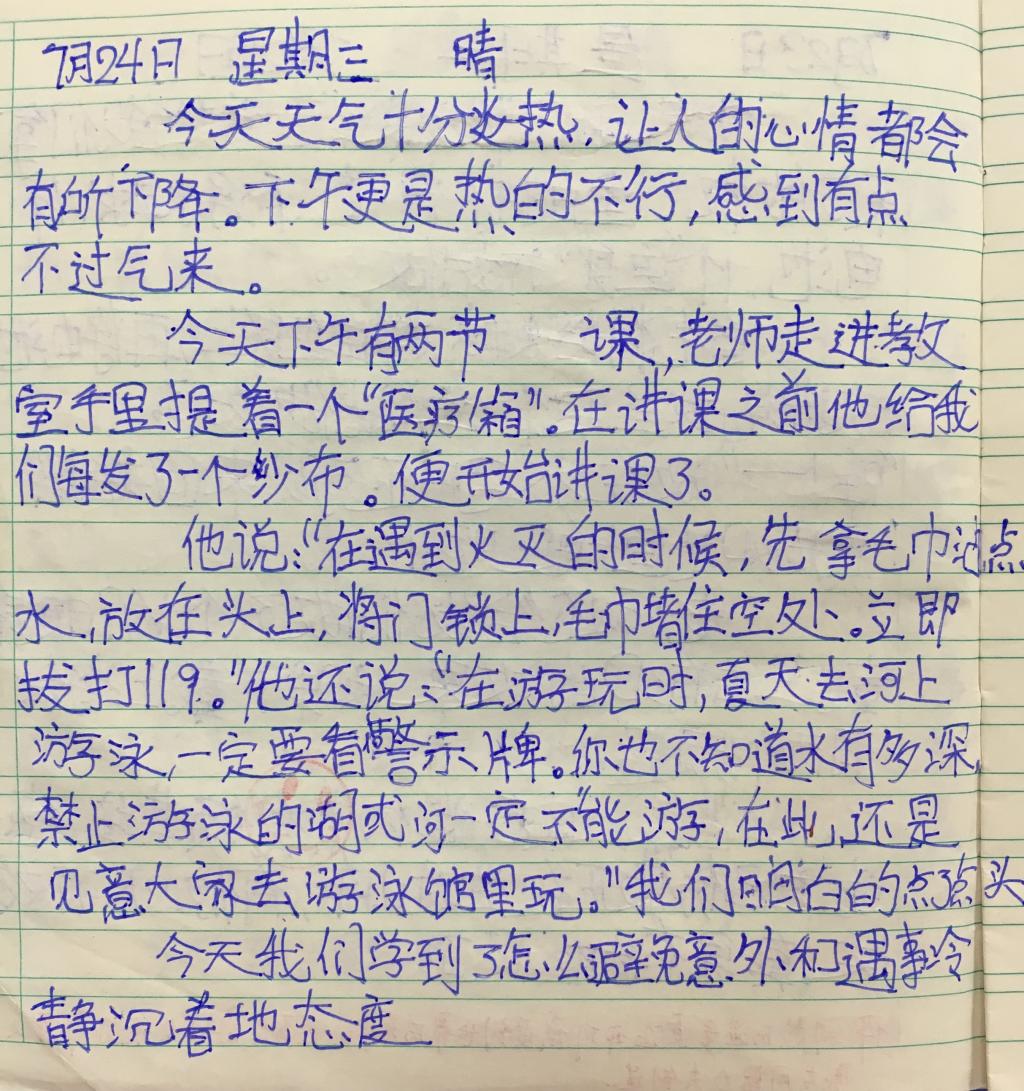 7月24日 星期三 晴
今天天气十分炎热,让人的心情都会
有所下降。下午更是热的不行,感到有点
不过气来。
今天下午有两节 课,老师走进教
室手里提着一个“医疗箱”。在讲课之前他给我
们每发了一个纱布。便开始讲课了。
他说:“在遇到火灾的时候,先拿毛巾沾点
水,放在头上,将门锁上,毛巾堵住空处。立即
拔打119。”他还说:“在游玩时,夏天去河上
游泳,一定要看警示牌。你也不知道水有多深,
禁止游泳的湖或河一定不能游,在此,还是
见意大家去游泳馆里玩。”我们明白的点点头
今天我们学到了怎么避免意外和遇事冷
静沉着地态度